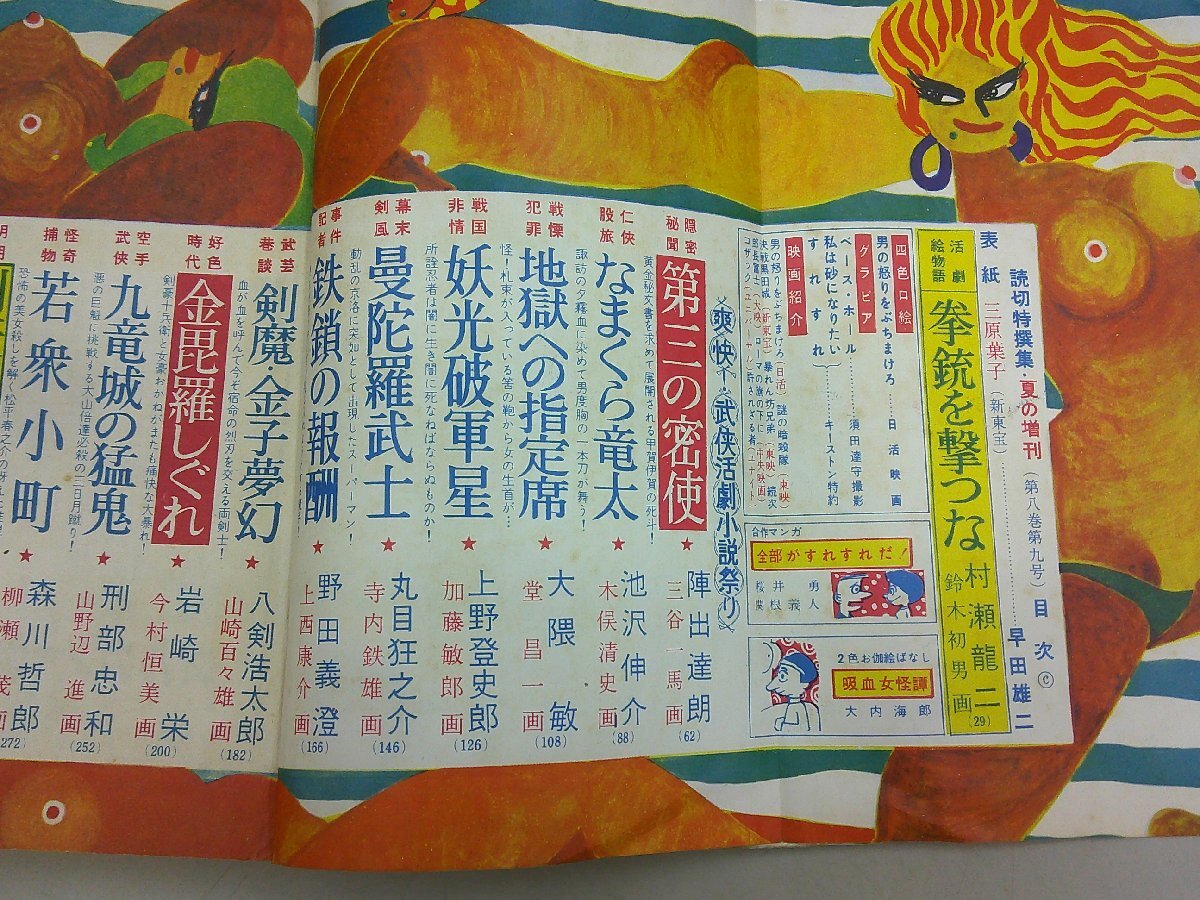 読切特撰集・夏の増刊（第八巻第九号）目次©
表紙 三原葉子（新東宝）…………早田雄二
活劇絵物語
拳銃を撃つな
村瀬龍二
鈴木初男画
(29)
四色口絵
男の怒りをぶちまけろ……日活映画
グラビア
ベース・ボール………須田達守撮影
私は砂になりたい
すれすれ………キーストン特約
映画紹介
男の怒りをぶちまけろ（日活）謎の暗殺隊（東映）
合作マンガ
全部がすれすれだ！
桜井勇
農根義人
2色お伽絵ばなし
吸血女怪譚
大内海郎
爽快・武侠活劇小説祭り
隠密秘聞
第三の密使
黄金秘文書を求めて展開される甲賀伊賀の死斗！
★
陣出達朗
三谷一馬画
(62)
仁侠股旅
なまくら竜太
諏訪の夕霧血に染めて男度胸の一本刀が舞う！
★
池沢伸介
木俣清史画
(88)
戦慄犯罪
地獄への指定席
怪！札束が入っている筈の鞄から女の生首が…
★
大隈敏
堂昌一画
(108)
戦国非情
妖光破軍星
所詮忍者は闇に生き闇に死なねばならぬものか！
★
上野登史郎
加藤敏郎画
(126)
幕末剣風
曼陀羅武士
動乱の京洛に突如として出現したスーパーマン！
★
丸目狂之介
寺内鉄雄画
(146)
事件記者
鉄鎖の報酬
★
野田義澄
上西康介画
(166)
武芸巷談
剣魔・金子夢幻
血が血を呼んで今ぞ宿命の烈刃を交える両剣士！
★
八剣浩太郎
山崎百々雄画
(182)
好色時代
金毘羅しぐれ
剣豪十兵衛と女豪おかねがまたも痛快な大暴れ！
★
岩崎栄
今村恒美画
(200)
空手武侠
九竜城の猛鬼
悪の巨魁に挑戦する大山倍達必殺の三日月蹴り！
★
刑部忠和
山野辺進画
(252)
怪奇捕物
若衆小町
★
森川哲郎
柳瀬茂画
(272)